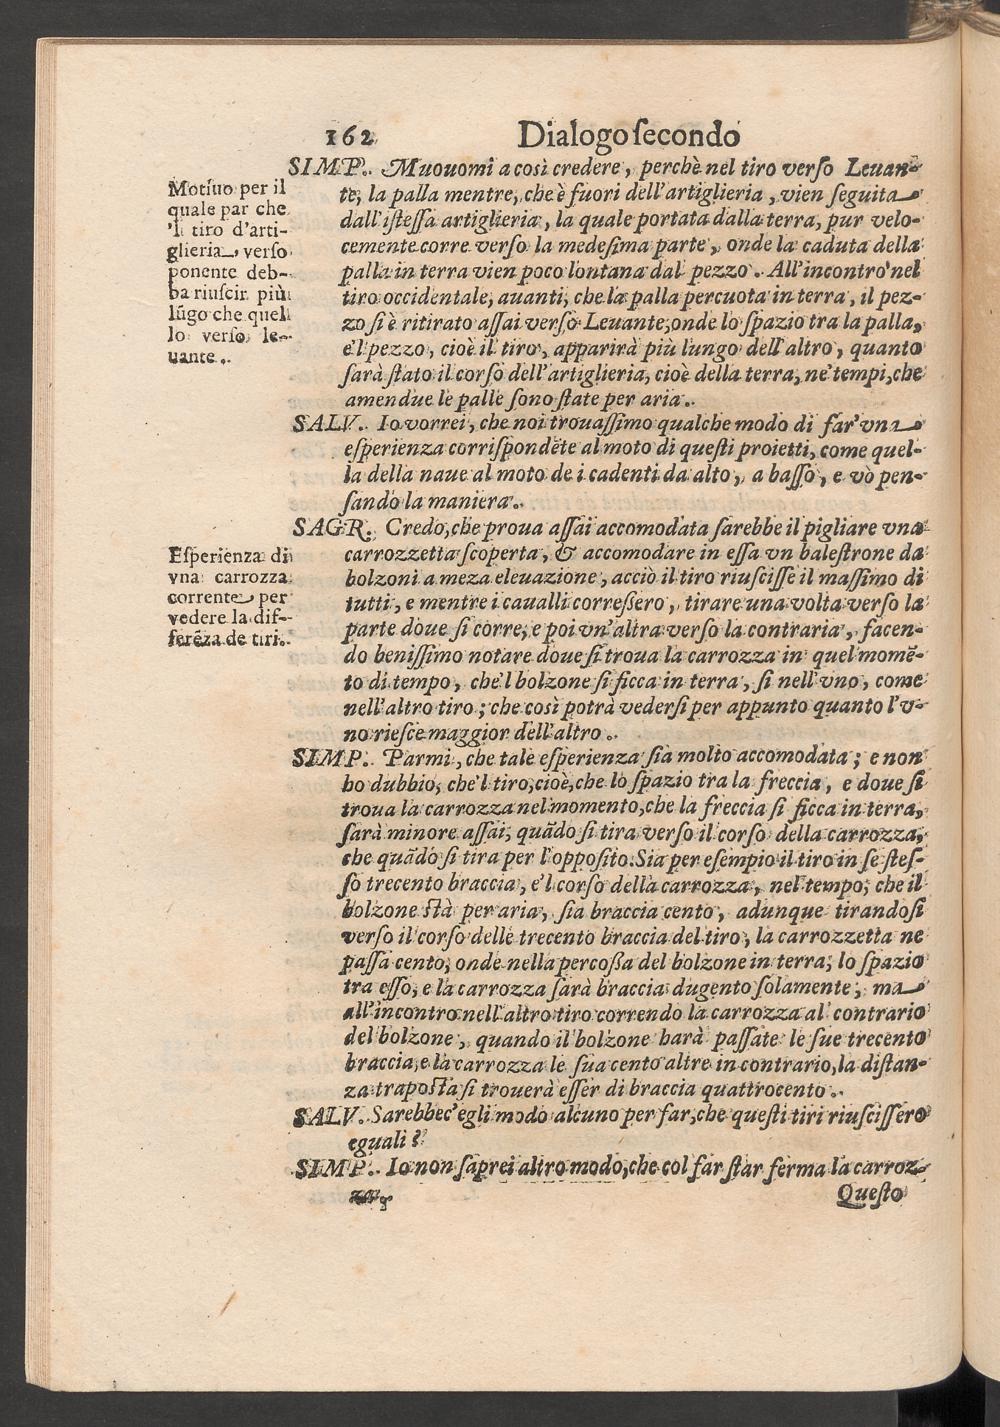 162 Dialogo ſecondo
SIMP. Muouomi a così credere, perchè nel tiro verſo Leuan-
te, la palla mentre, che è fuori dell'artiglieria, vien ſeguita
dall'iſteſſa artiglieria, la quale portata dalla terra, pur velo-
cemente corre verſo la medeſima parte, onde la caduta della
palla in terra vien poco lontana dal pezzo. All'incontro nel
tiro occidentale, auanti, che la palla percuota in terra, il pez-
zo ſi è ritirato aſſai verſo Leuante, onde lo ſpazio tra la palla,
e'l pezzo, cioè il tiro, apparirà più lungo dell'altro, quanto
ſarà ſtato il corſo dell'artiglieria, cioè della terra, ne' tempi, che
amendue le palle ſono ſtate per aria.
Motiuo per il
quale par che
'l tiro d'arti-
glieria, verſo
ponente deb-
ba riuſcir più
lũgo che quel
lo verſo le-
uante.
SALV. Io vorrei, che noi trouaſſimo qualche modo di far' vna
eſperienza corriſpondẽte al moto di queſti proietti, come quel-
la della naue al moto de i cadenti da alto, a baſſo, e vò pen-
ſando la maniera.
SAGR. Credo, che proua aſſai accomodata ſarebbe il pigliare vna
carrozzetta ſcoperta, & accomodare in eſſa vn baleſtrone da
bolzoni a meza eleuazione, acciò il tiro riuſciſſe il maſſimo di
tutti, e mentre i caualli correßero, tirare una volta verſo la
parte doue ſi corre, e poi vn'altra verſo la contraria, facen-
do beniſſimo notare doue ſi troua la carrozza in quel momẽ-
to di tempo, che'l bolzone ſi ficca in terra, ſi nell'vno, come
nell'altro tiro; che così potrà vederſi per appunto quanto l'v-
no rieſce maggior dell'altro.
Eſperienza di
vna carrozza
corrente per
vedere la dif-
ferẽza de tiri.
SIMP. Parmi, che tale eſperienza ſia molto accomodata; e non
ho dubbio, che'l tiro, cioè, che lo ſpazio tra la freccia, e doue ſi
troua la carrozza nel momento, che la freccia ſi ficca in terra,
ſarà minore aſſai, quãdo ſi tira verſo il corſo della carrozza,
che quãdo ſi tira per l'oppoſito. Sia per eſempio il tiro in ſe ſteſ-
ſo trecento braccia, e'l corſo della carrozza, nel tempo, che il
bolzone ſtà per aria, ſia braccia cento, adunque tirandoſi
verſo il corſo delle trecento braccia del tiro, la carrozzetta ne
paſſa cento, onde nella percoßa del bolzone in terra, lo ſpazio
tra eſſo, e la carrozza ſarà braccia dugento ſolamente, ma
all'incontro nell'altro tiro correndo la carrozza al contrario
del bolzone, quando il bolzone harà paſſate le ſue trecento
braccia, e la carrozza le ſua cento altre in contrario, la diſtan-
za trapoſta ſi trouerà eſſer di braccia quattrocento.
SALV. Sarebbec'egli modo alcuno per far, che queſti tiri riuſciſſero
eguali?
SIMP. Io non ſaprei altro modo, che col far ſtar ferma la carroz-
za.
Queſto